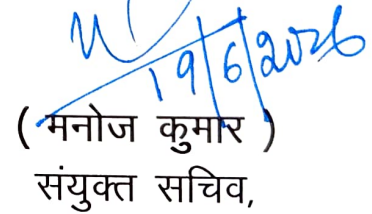 19/6/2026
( मनोज कुमार )
संयुक्त सचिव,